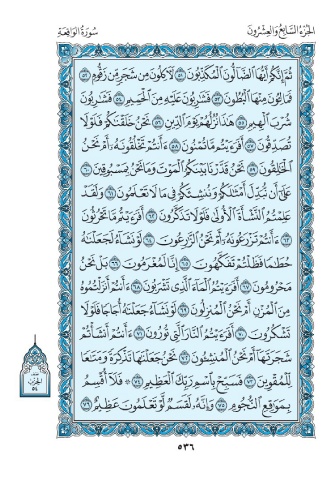 الجزء السابع والعشرون
سورة الواقعة
ثُمَّ إِنَّكُمْ أَيُّهَا الضَّالُّونَ الْمُكَذِّبُونَ ٥١ لَآكِلُونَ مِن شَجَرٍ مِّن زَقُّومٍ ٥٢
فَمَالِئُونَ مِنْهَا الْبُطُونَ ٥٣ فَشَارِبُونَ عَلَيْهِ مِنَ الْحَمِيمِ ٥٤ فَشَارِبُونَ
شُرْبَ الْهِيمِ ٥٥ هَٰذَا نُزُلُهُمْ يَوْمَ الدِّينِ ٥٦ نَحْنُ خَلَقْنَاكُمْ فَلَوْلَا
تُصَدِّقُونَ ٥٧ أَفَرَأَيْتُم مَّا تُمْنُونَ ٥٨ أَأَنتُمْ تَخْلُقُونَهُ أَمْ نَحْنُ
الْخَالِقُونَ ٥٩ نَحْنُ قَدَّرْنَا بَيْنَكُمُ الْمَوْتَ وَمَا نَحْنُ بِمَسْبُوقِينَ ٦٠
عَلَىٰ أَن نُّبَدِّلَ أَمْثَالَكُمْ وَنُنشِئَكُمْ فِي مَا لَا تَعْلَمُونَ ٦١ وَلَقَدْ
عَلِمْتُمُ النَّشْأَةَ الْأُولَىٰ فَلَوْلَا تَذَكَّرُونَ ٦٢ أَفَرَأَيْتُم مَّا تَحْرُثُونَ
٦٣ أَأَنتُمْ تَزْرَعُونَهُ أَمْ نَحْنُ الزَّارِعُونَ ٦٤ لَوْ نَشَاءُ لَجَعَلْنَاهُ
حُطَامًا فَظَلْتُمْ تَفَكَّهُونَ ٦٥ إِنَّا لَمُغْرَمُونَ ٦٦ بَلْ نَحْنُ
مَحْرُومُونَ ٦٧ أَفَرَأَيْتُمُ الْمَاءَ الَّذِي تَشْرَبُونَ ٦٨ أَأَنتُمْ أَنزَلْتُمُوهُ
مِنَ الْمُزْنِ أَمْ نَحْنُ الْمُنزِلُونَ ٦٩ لَوْ نَشَاءُ جَعَلْنَاهُ أُجَاجًا فَلَوْلَا
تَشْكُرُونَ ٧٠ أَفَرَأَيْتُمُ النَّارَ الَّتِي تُورُونَ ٧١ أَأَنتُمْ أَنشَأْتُمْ
شَجَرَتَهَا أَمْ نَحْنُ الْمُنشِئُونَ ٧٢ نَحْنُ جَعَلْنَاهَا تَذْكِرَةً وَمَتَاعًا
لِّلْمُقْوِينَ ٧٣ فَسَبِّحْ بِاسْمِ رَبِّكَ الْعَظِيمِ ٧٤ ۞ فَلَا أُقْسِمُ
بِمَوَاقِعِ النُّجُومِ ٧٥ وَإِنَّهُ لَقَسَمٌ لَّوْ تَعْلَمُونَ عَظِيمٌ ٧٦
نصف
الحزب
٥٤
٥٣٦